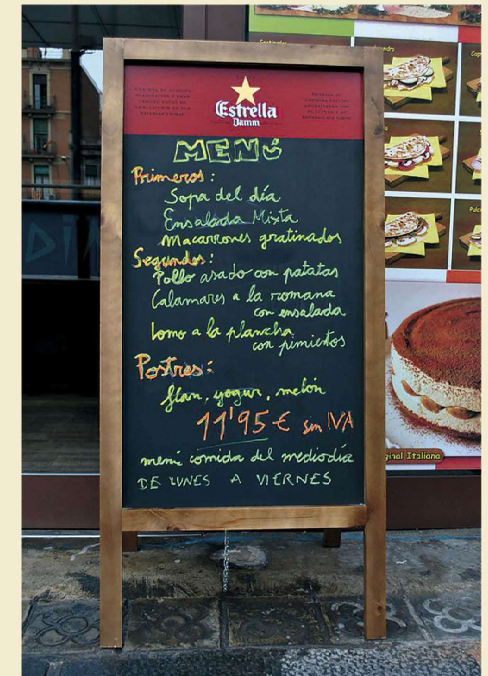 Estrella
Damm
MENÚ
Primeros:
Sopa del día
Ensalada Mixta
Macarrones gratinados
Segundos:
Pollo asado con patatas
Calamares a la romana
con ensalada
Lomo a la plancha
con pimientos
Postres:
flan, yogur, melón
11'95 € sin IVA
menú comida del mediodía
DE LUNES A VIERNES
Original Italiana